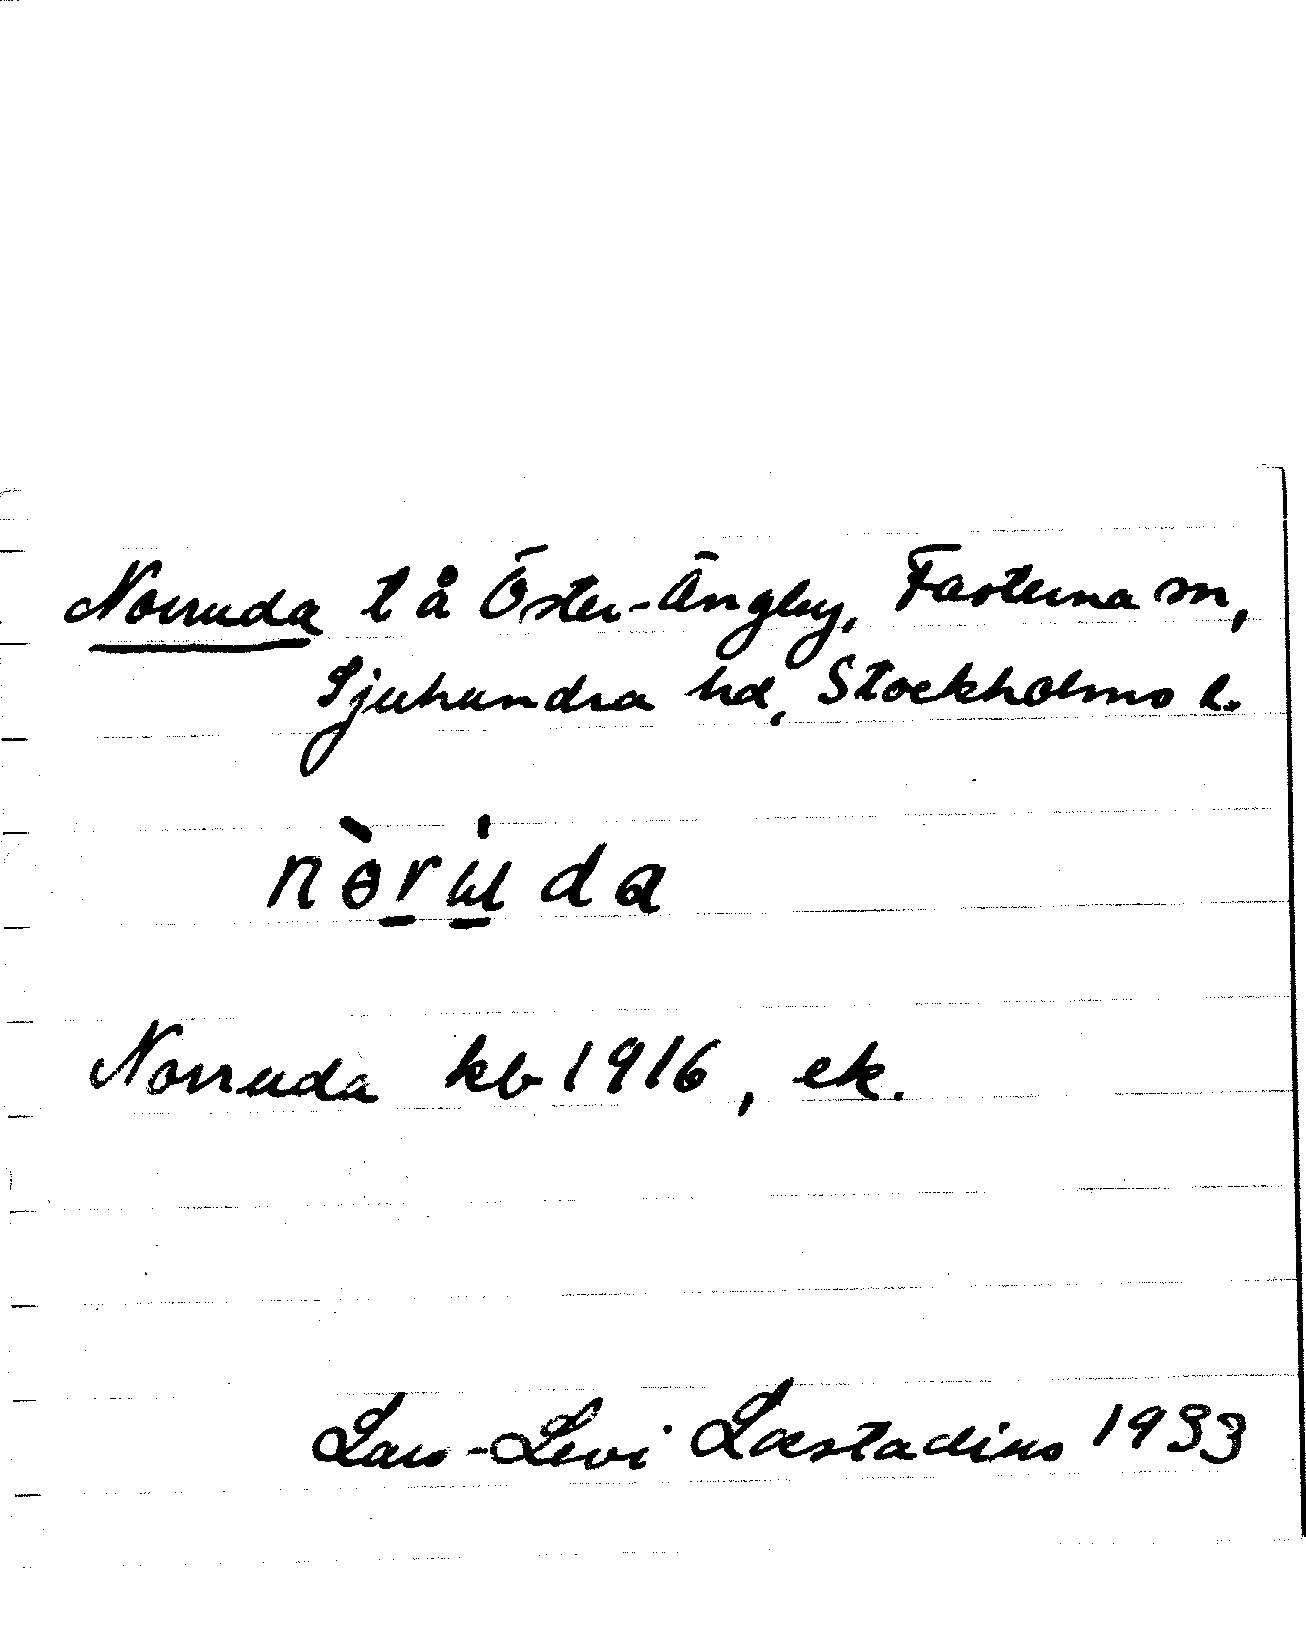 Norruda t å Öster-Ängby, Fasterna sn,
Sjuhundra hd, Stockholms l.
nòru̇da
Norruda kb 1916, ek.
Lars-Levi Læstadius 1933